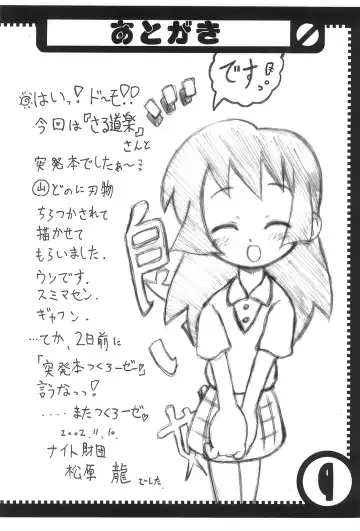 あとがき
です。っ
はいっ!ド〜モ!!
今回は『さる道楽』
さんと
突発本でしたぁ〜っ
山どのに刃物
ちらつかされて
描かせて
もらいました.
ウソです.
スミマセン.
ギャフン.
…てか、2日前に
「突発本つくろーぜ♡」
言うなっっ!
....またつくろーぜ♡
2002.11.10.
ナイト財団
松原 龍 でした